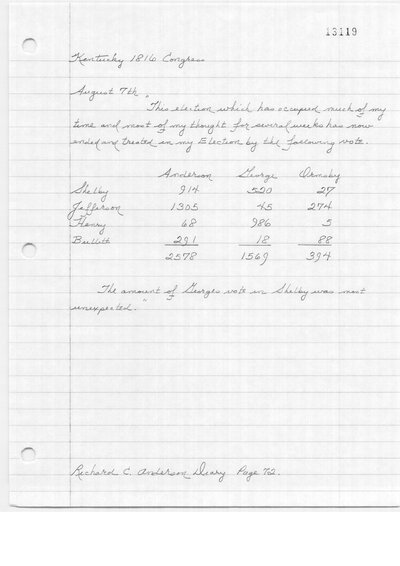 13119
Kentucky 1816 Congress
August 7th "
This election which has occupied much of my
time and most of my thought for several weeks has now
ended and treated in my Election by the following vote.
Anderson George Ormsby
Shelby 914 520 27
Jefferson 1305 45 274
Henry 68 986 5
Bullitt 291 18 88
2578 1569 394
The amount of Georges vote in Shelby was most
unexpected."
Richard C. Anderson Diary Page 72.